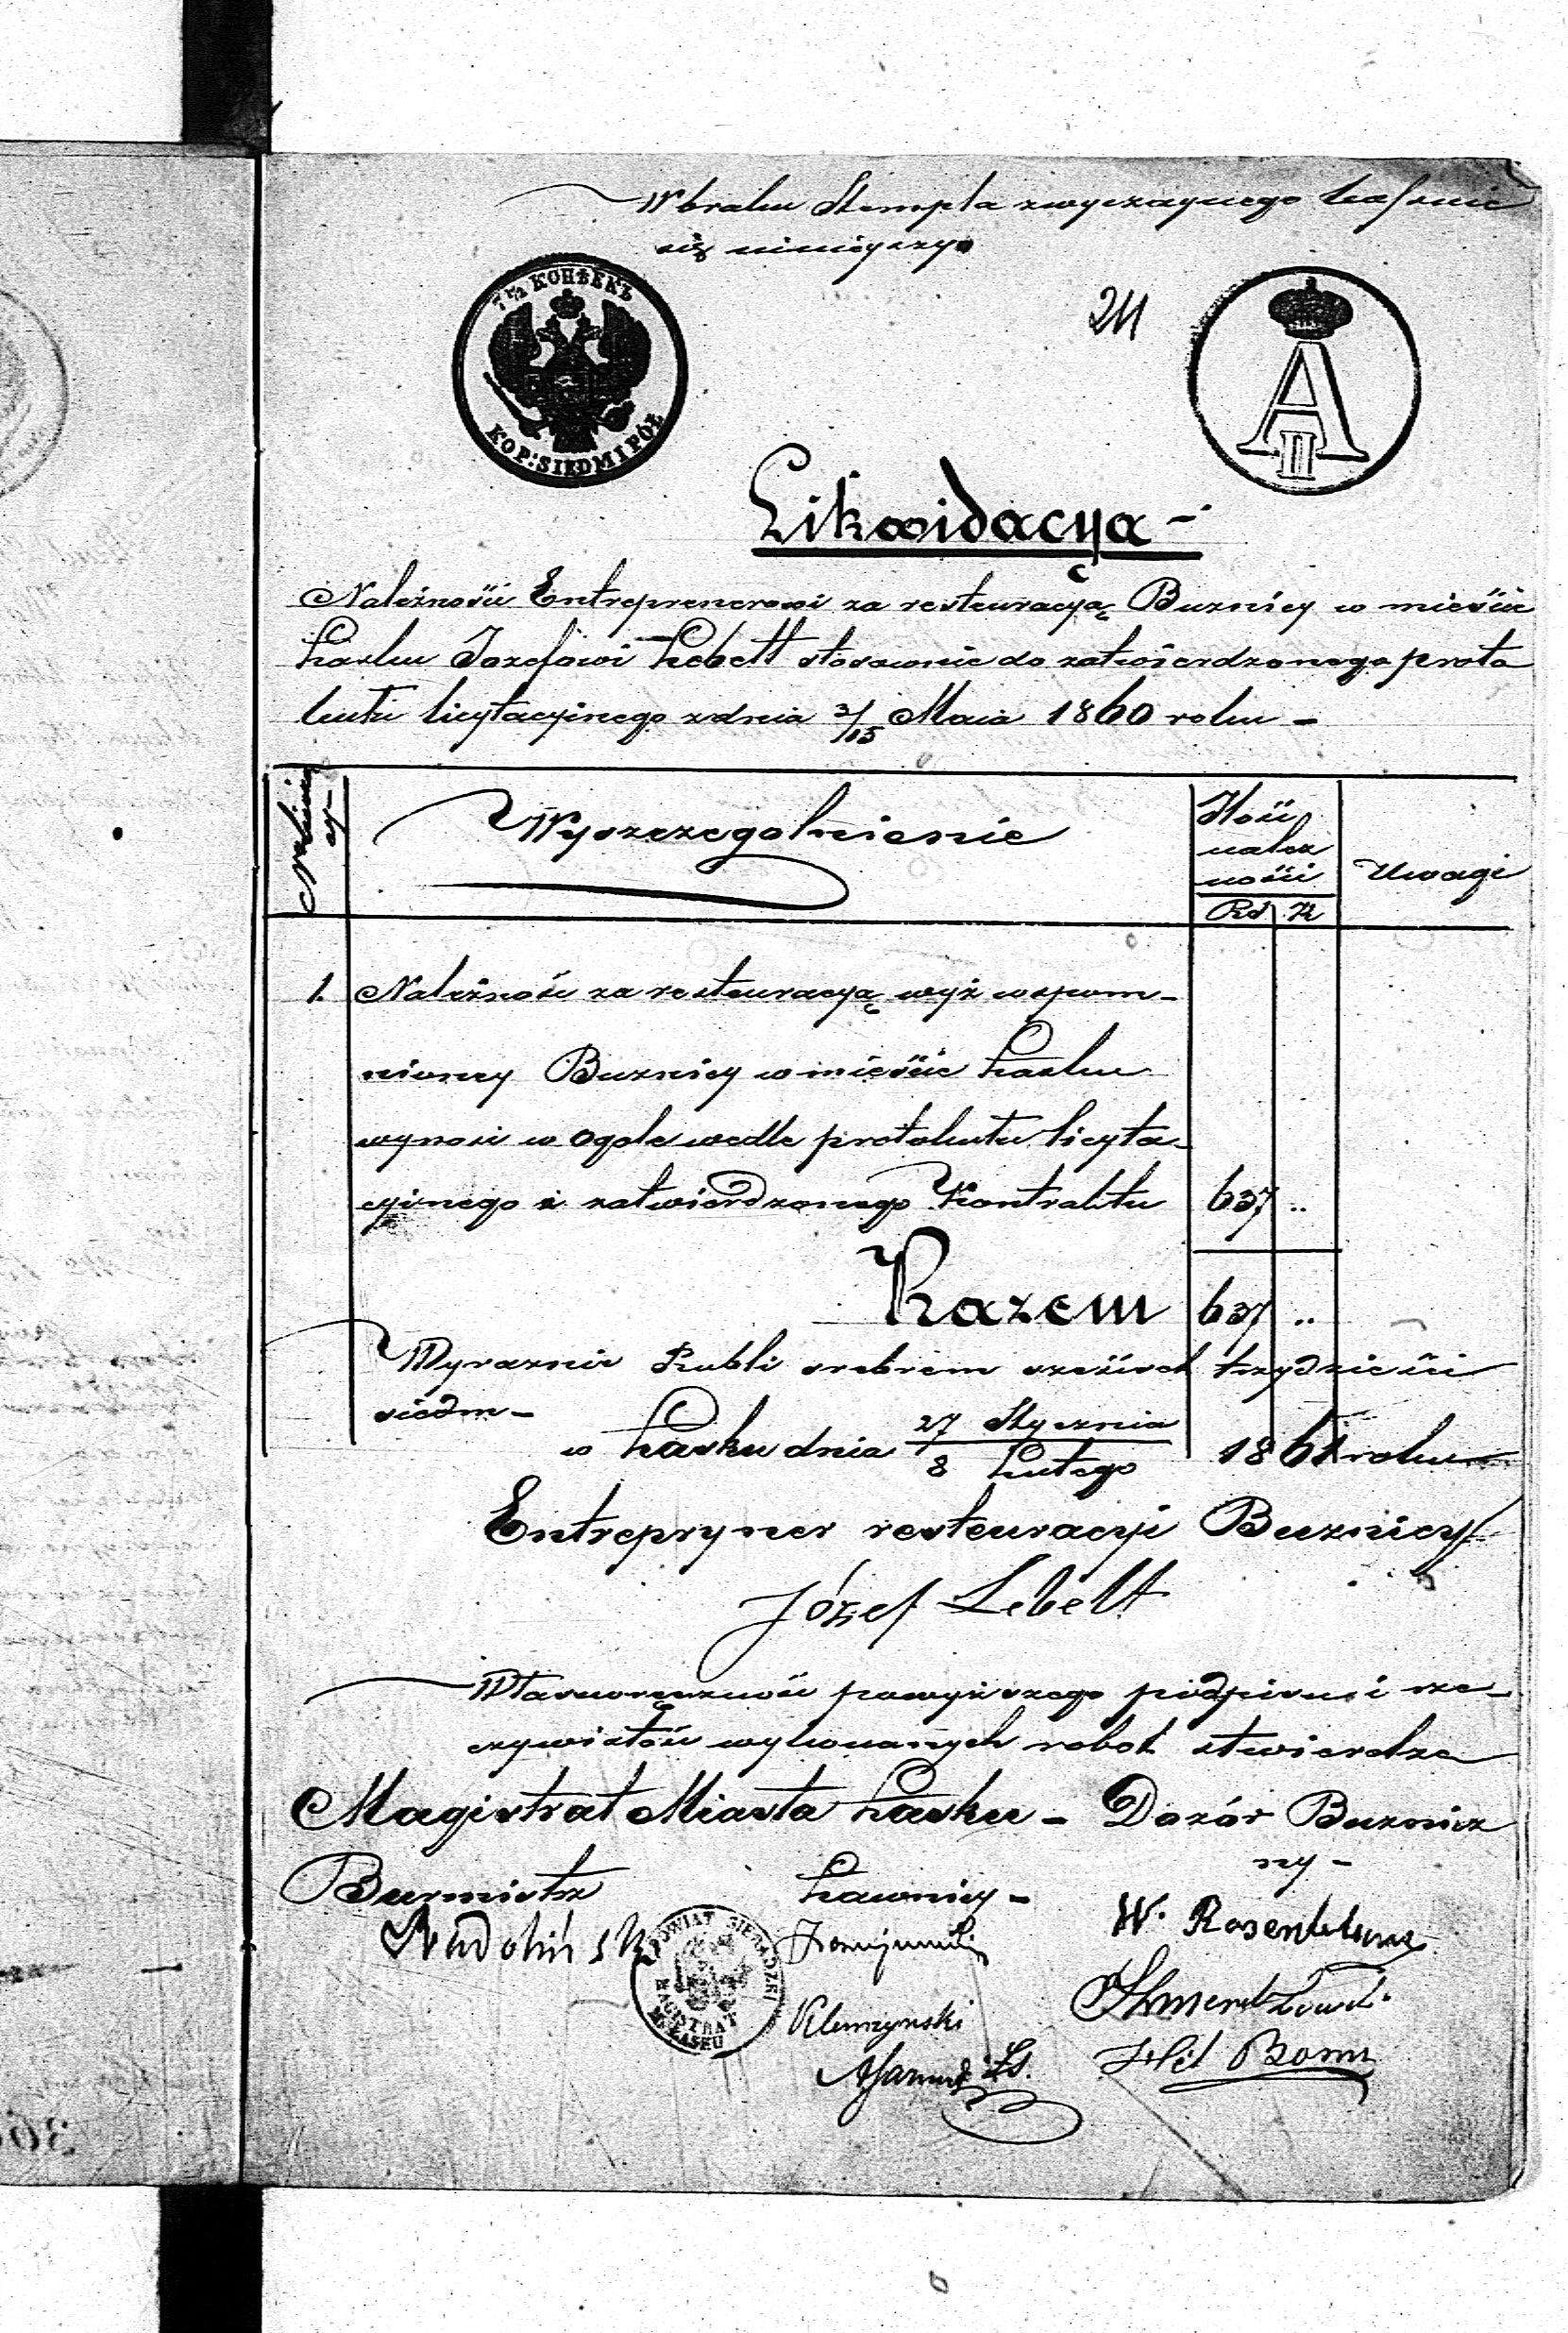 W braku Stempla zwyczaynego kassuie
się niniejszy
7 1/2 КОПѢЕКЪ
KOP: SIEDM I PÓŁ
211
A II
Likwidacya -
Należności Entreprenerowi za resteuracyą Buznicy w mieście
Łasku Jozefowi Lebelt stosownie do zatwierdzonego proto
kułu licytacyinego z dnia 3/15 Maia 1860 roku -
Wyszczegolnienie
Ilość
należ
ności
Uwagi
Rs K
1. Należność za resteuracyą wyż wspom-
nioney Buznicy w mieście Łasku
wynosi w ogole wedle protokułu licyta-
cyinego i zatwierdzonego Kontraktu 637 ..
Razem 637 ..
Wyraznie Rubli srebrem sześćset trzydzieści
siedm -
w Łasku dnia 27 Stycznia / 8 Lutego 1861 roku
Entrepryner resteuracyi Buznicy
Józef Lebelt
Własnoręczność powyższego podpisu i rze-
czywistość wykonanych robot stwierdza
Magistrat Miasta Łasku - Dozór Buznicz
ny -
Burmistrz Ławnicy -
POWIAT SIERADZKI
MAGISTRAT
M. ŁASKU
W. Rosenblum
Klemzynski